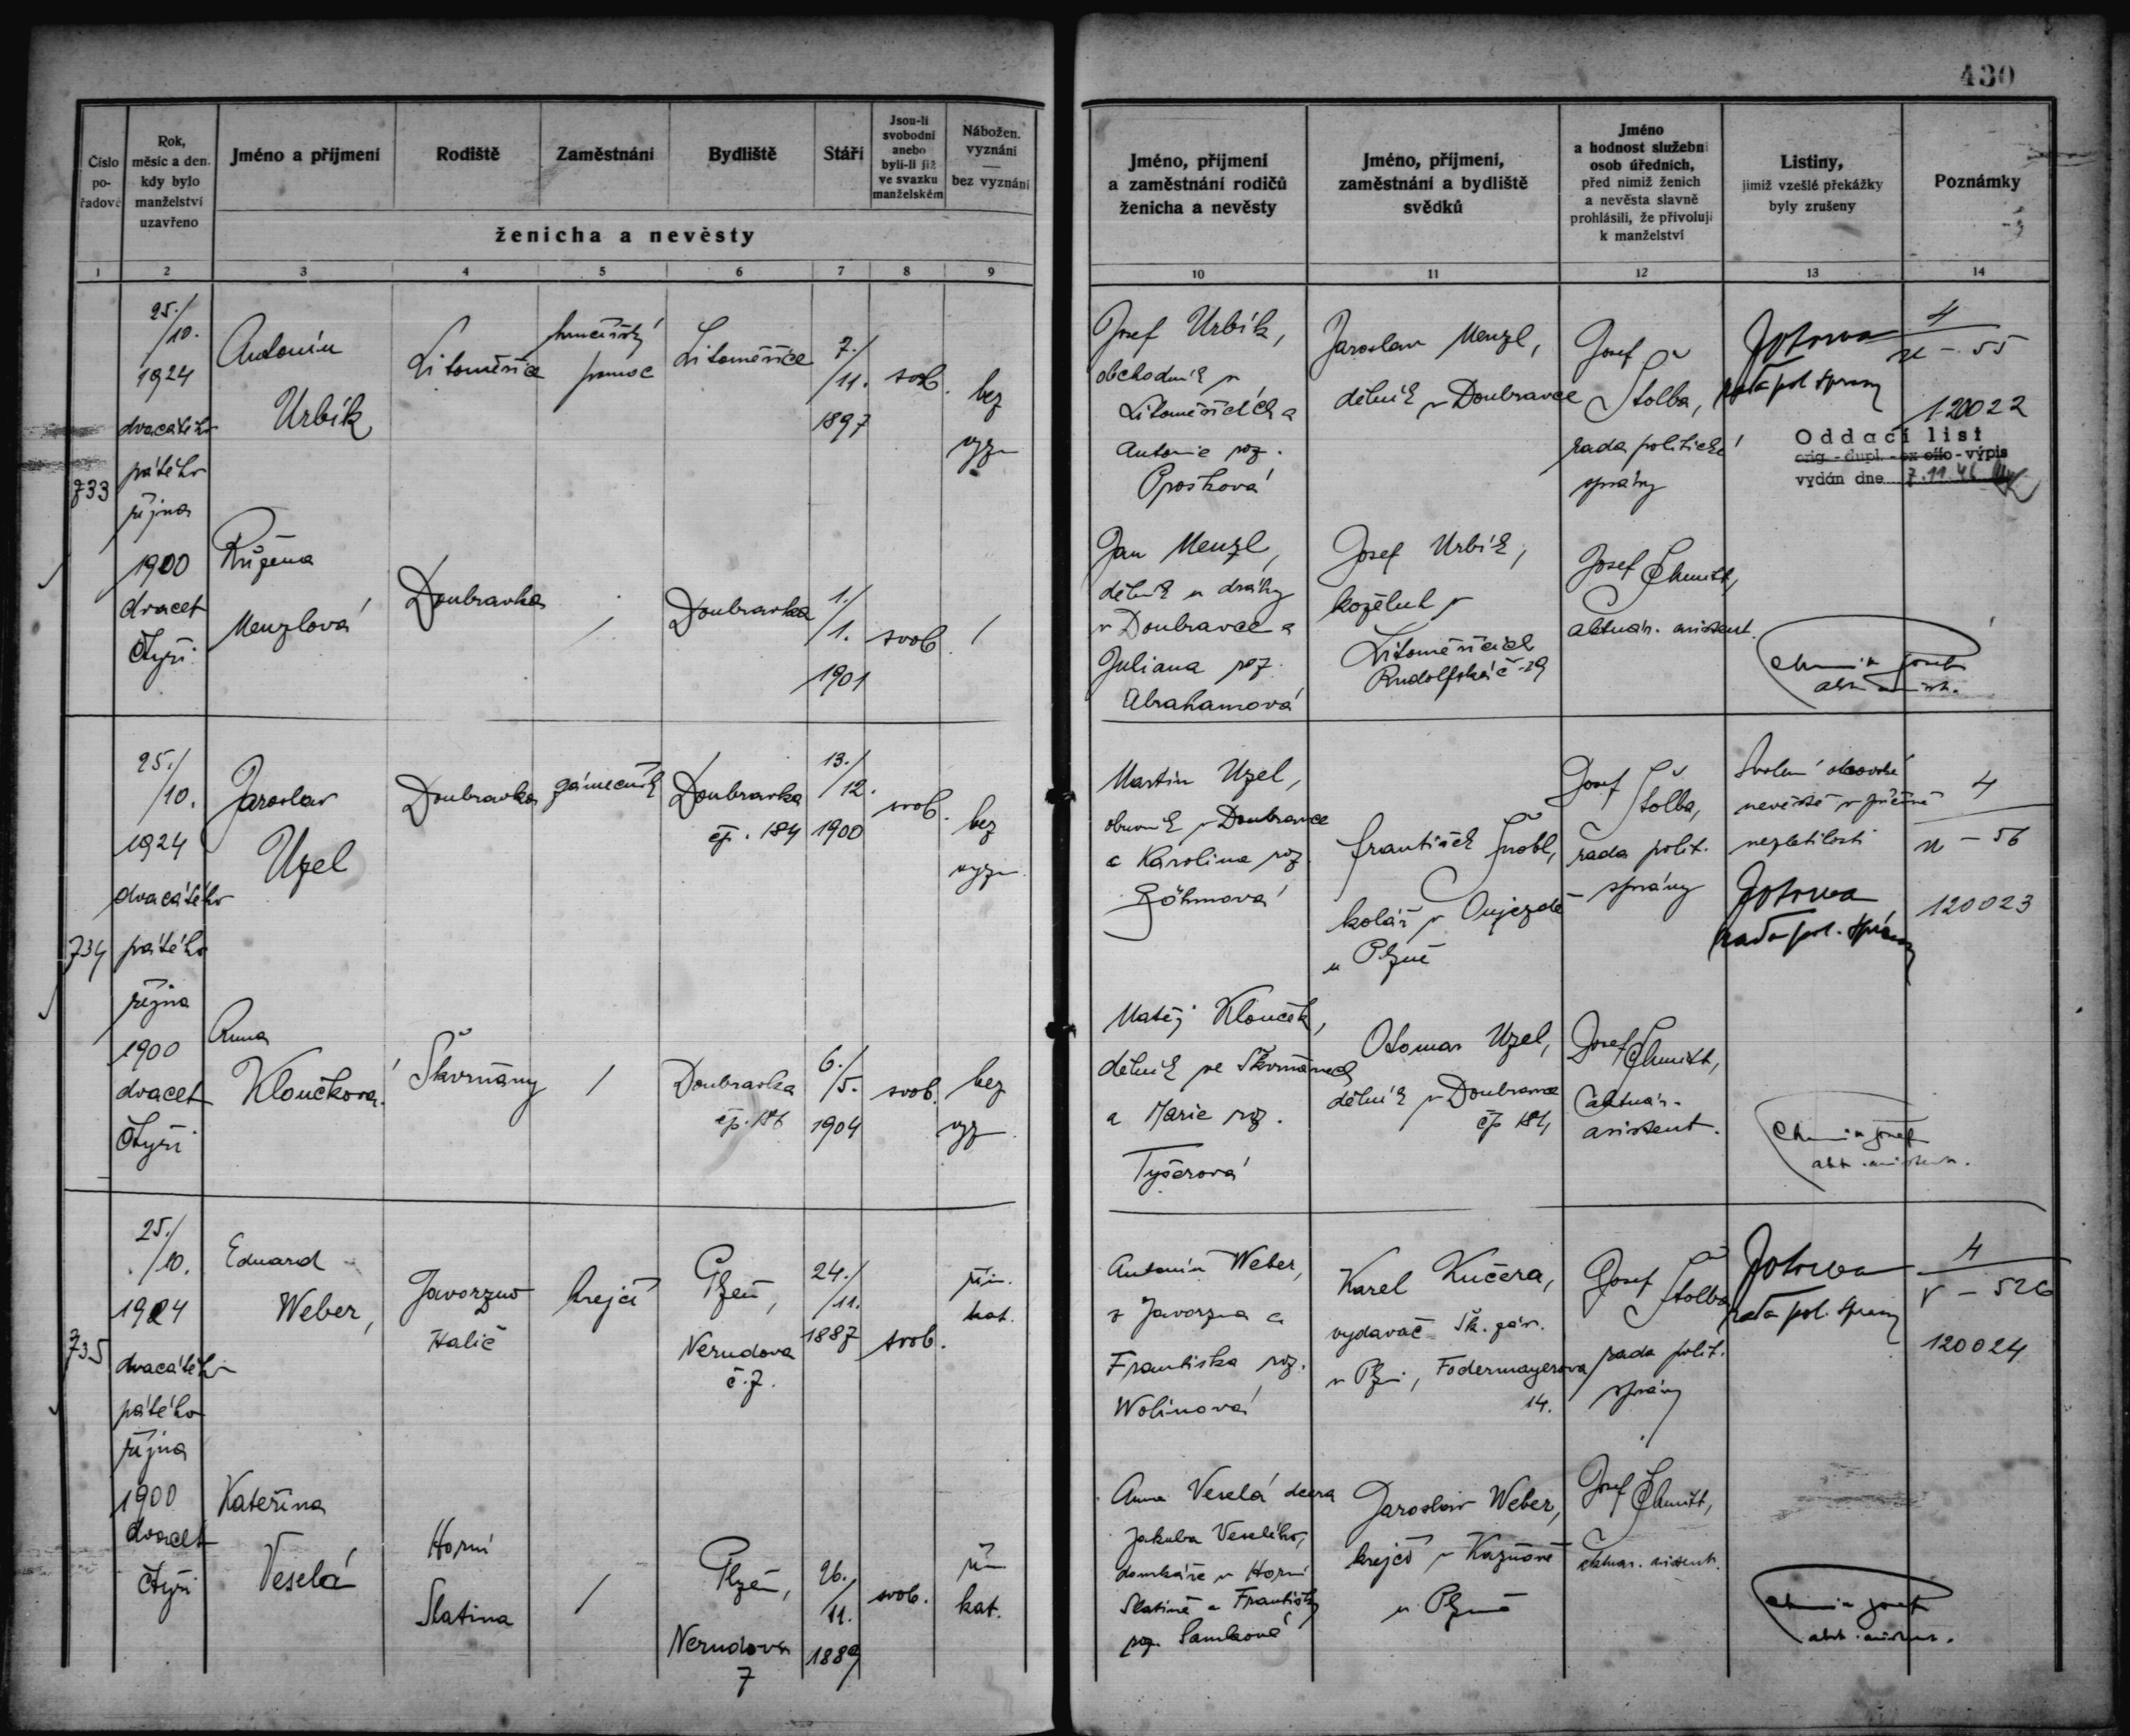 430
Číslo
po-
řadové
Rok,
měsíc a den.
kdy bylo
manželství
uzavřeno
Jméno a příjmení
Rodiště
Zaměstnání
Bydliště
Stáří
Jsou-li
svobodni
anebo
byli-li již
ve svazku
manželském
Nábožen.
vyznání
bez vyznání
ženicha a nevěsty
Jméno, příjmení
a zaměstnání rodičů
ženicha a nevěsty
Jméno, příjmení,
zaměstnání a bydliště
svědků
Jméno
a hodnost služební
osob úředních,
před nimiž ženich
a nevěsta slavně
prohlásili, že přivolují
k manželství
Listiny,
jimiž vzešlé překážky
byly zrušeny
Poznámky
1 2 3 4 5 6 7 8 9 10 11 12 13 14
733
25./
/10.
1924
dvacátého
pátého
října
1900
dvacet
čtyři
Antonín
Urbík
Litoměřice
pomoc
Litoměřice
7./
/11.
1897
svob.
bez
vyzn
Josef Urbík,
obchodník v
Litoměřicích a
Antonie roz.
Jaroslav Menzl,
dělník v Doubravce
Josef
Štolba,
rada politické
správy
rada pol. správy
4
u - 55
120022
Oddací list
orig.-dupl.-ex offo-výpis
vydán dne 7.11.46
Růžena
Menzlová
Doubravka
/
Doubravka
1./
/1.
1901
svob.
/
Jan Menzl,
dělník u dráhy
v Doubravce a
Juliana roz.
Abrahamová
Josef Urbík,
koželuh v
Litoměřicích
Rudolfská č. 29
Josef Schmitt,
aktuár. asistent.
734
25./
/10.
1924
dvacátého
pátého
října
1900
dvacet
čtyři
Jaroslav
Uzel
Doubravka
zámečník
Doubravka
čp. 184
13./
/12.
1900
svob.
bez
vyzn.
Martin Uzel,
obuvník v Doubravce
a Karolina roz.
Böhmová
František
kolář v Oujezdě
u Plzně
Josef
Štolba,
rada polit.
správy
Svolení otcovské
nevěstě v příčině
nezletilosti
rada pol. správy
4
u - 56
120023
Anna
Kloučková
Škvrňany
/
Doubravka
6./
/5.
1904
svob.
bez
vyz
Matěj Klouček,
dělník ve Škvrňanech
a Marie roz.
Tyčerová
Otomar Uzel,
dělník v Doubravce
čp 184
Josef Schmitt,
aktuár.
asistent.
735
25./
/10.
1924
dvacátého
pátého
října
1900
dvacet
čtyři
Eduard
Weber,
Javorzno
Halič
krejčí
Plzeň,
Nerudova
č. 7.
24./
/11.
1887
svob.
řím.
kat.
Antonín Weber,
z Javorzna a
Františka roz.
Wolinová
Karel Kučera,
vydavač Šk. záv.
v Plzni, Fodermayerova
14.
Josef
Štolba
rada polit.
správy
rada pol. správy
4
v - 526
120024
Kateřina
Veselá
Horní
Slatina
/
Plzeň,
Nerudova
7
26./
/11.
1889
svob.
řím
kat.
Anna Veselá dcera
Jakuba Veselého,
domkáře v Horní
Slatině a Františky
roz.
Jaroslav Weber,
krejčí v Kaznově
u Plzně
Josef Schmitt,
aktuar. asistent.